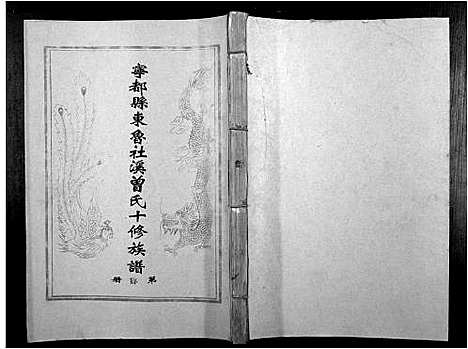 寧都縣東魯社溪曾氏十修族譜
第 冊